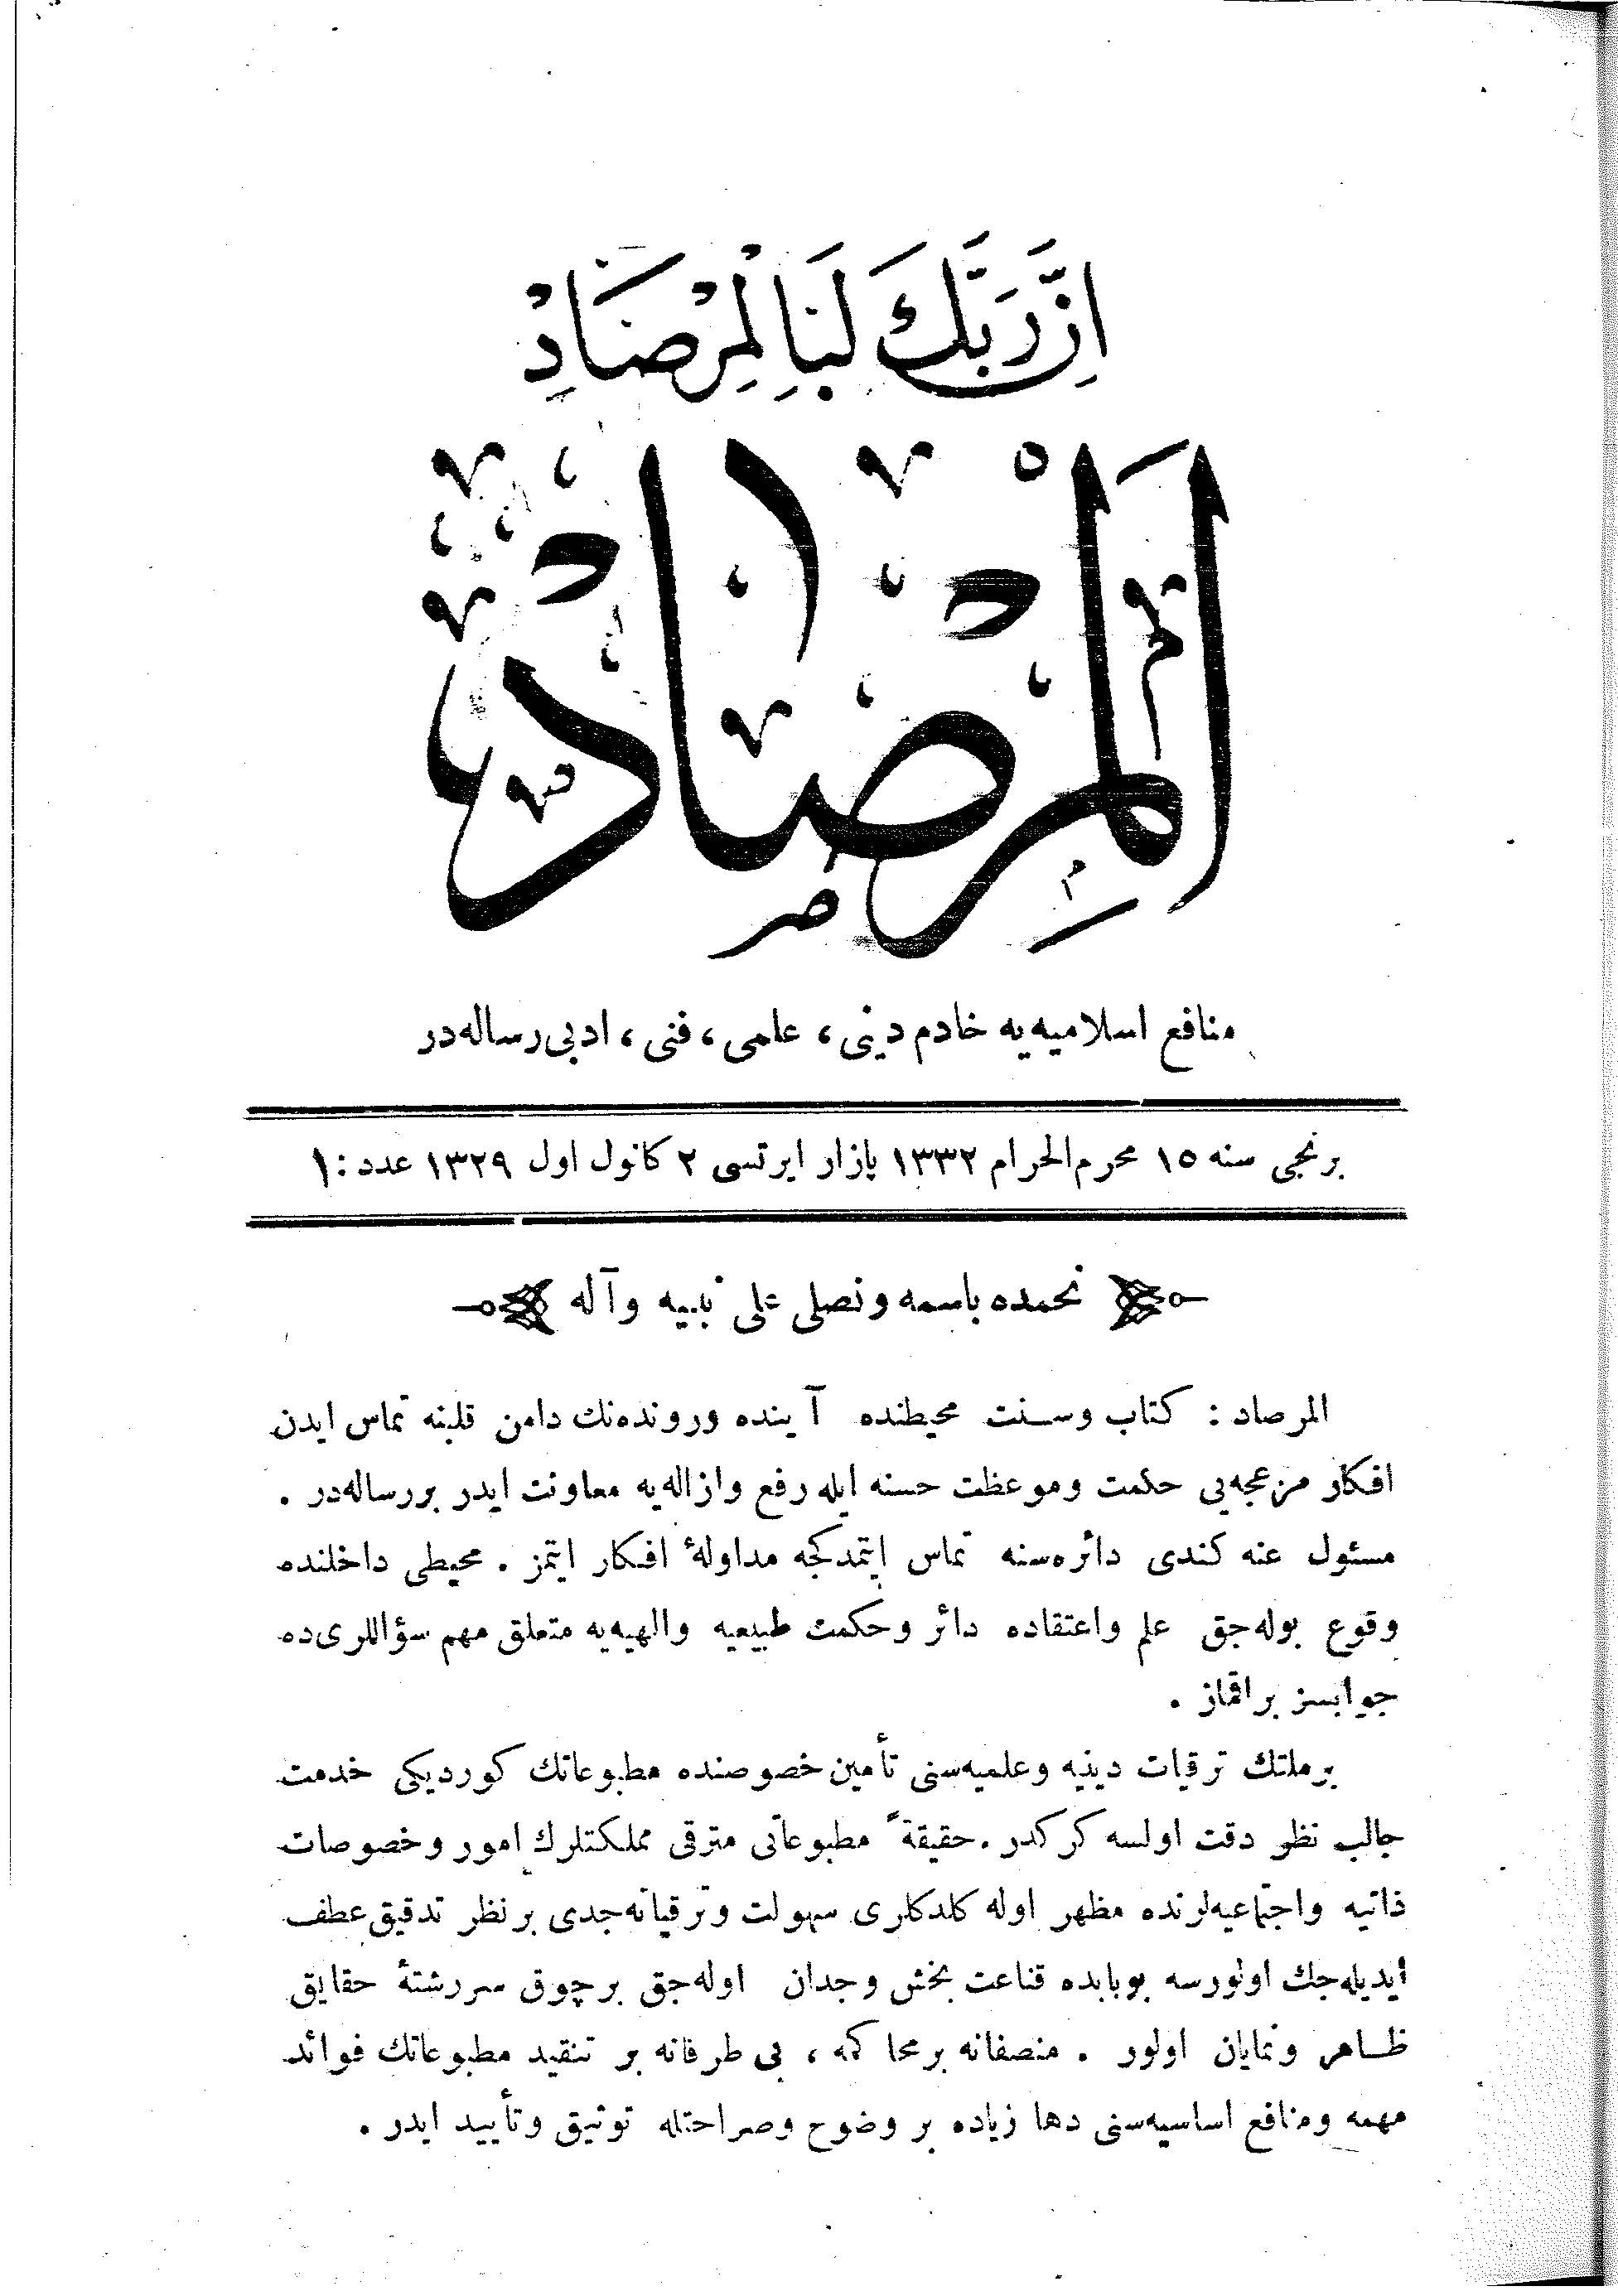 اِنَّ رَبَّكَ لَبَالِمْرْصَادِ
اَلْمِرْصَادْ
منافع اسلاميه‌يه خادم دينى ، علمى ، فنى ، ادبى رساله‌در
برنجى سنه ١٥ محرم‌الحرام ١٣٣٢ پازار ايرتسى ٢ كانول اول ١٣٢٩ عدد : ١
نحمده باسمه ونصلى على نبيه وآله
المرصاد : كتاب وسنت محيطنده آينده ورونده‌نك دامن قلبنه تماس ايدن
افكار مزعجه‌يى حكمت وموعظت حسنه ايله رفع وازاله‌يه معاونت ايدر بررساله‌در .
مسئول عنه كندى دائره‌سنه تماس ايتمدكجه مداولهٔ افكار ايتمز . محيطى داخلنده
وقوع بوله‌جق علم واعتقاده دائر وحكمت طبيعيه والهيه‌يه متعلق مهم سؤاللرى‌ده
جوابسز براقماز .
برملتك ترقيات دينيه وعلميه‌سنى تأمين خصوصنده مطبوعاتك كورديكى خدمت
جالب نظر دقت اولسه كركدر . حقيقةً مطبوعاتى مترقى مملكتلرك امور وخصوصات
ذاتيه واجتماعيه‌لرنده مظهر اوله كلدكلرى سهولت وترقياته جدى برنظر تدقيق عطف
ايديله‌جك اولورسه بوبابده قناعت بخش وجدان اوله‌جق برچوق سررشتهٔ حقايق
ظاهر ونمايان اولور . منصفانه برمحاكمه ، بى طرفانه بر تنقيد مطبوعاتك فوائد
مهمه ومنافع اساسيه‌سنى دها زياده بر وضوح وصراحتله توثيق وتأييد ايدر .